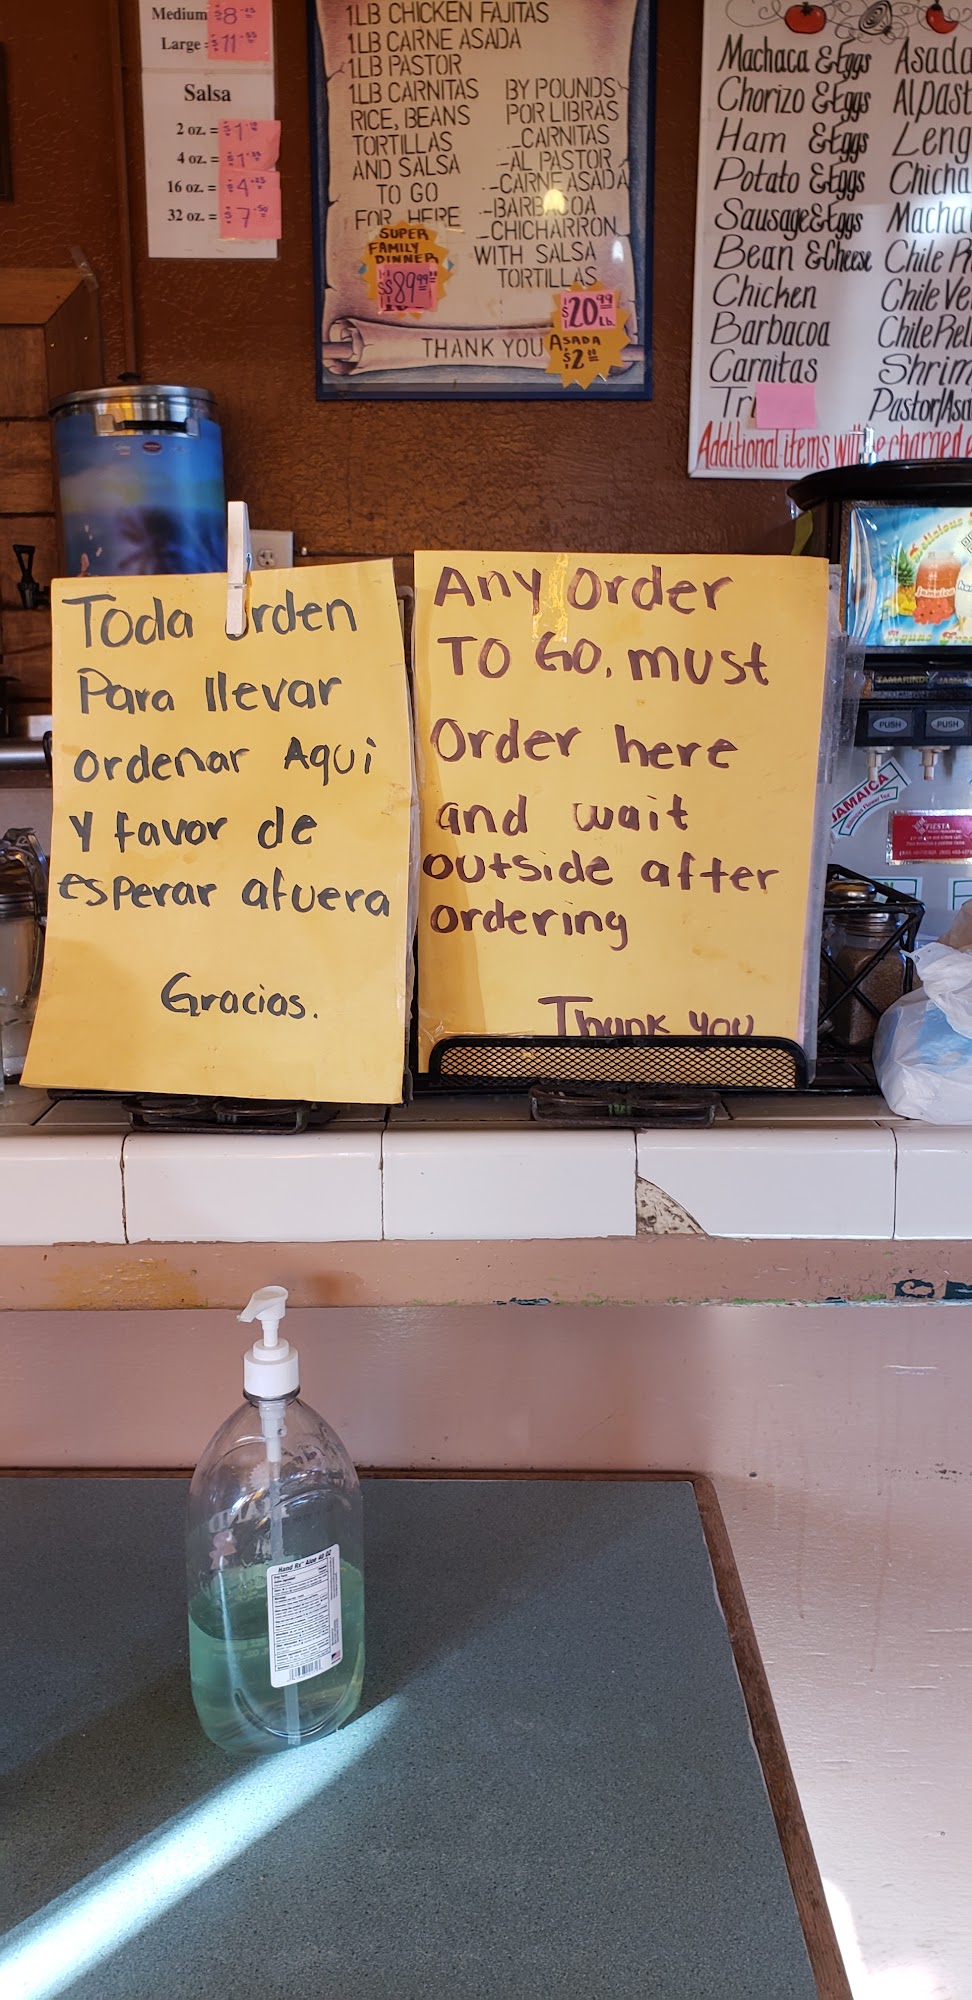 Medium $8.25
Large = $11
Salsa
2 oz. = $1
4 oz. = $1
16 oz. = $4.25
32 oz. = $7.50
1LB CHICKEN FAJITAS
1LB CARNE ASADA
1LB PASTOR
1LB CARNITAS
RICE, BEANS
TORTILLAS
AND SALSA
TO GO
FOR HERE
SUPER
FAMILY
DINNER
$89.99
BY POUNDS
POR LIBRAS
-CARNITAS
-AL PASTOR
-CARNE ASADA
-BARBACOA
-CHICHARRON
WITH SALSA
TORTILLAS
$20.99
Lb.
ASADA
$2.00
THANK YOU
Machaca & Eggs
Chorizo & Eggs
Ham & Eggs
Potato & Eggs
Sausage & Eggs
Bean & Cheese
Chicken
Barbacoa
Carnitas
Tri
Asada
Al past
Leng
Chicha
Macha
Chile R
Chile Ve
Chile Rel
Shrim
Pastor/Asa
Additional items will be charged
Toda orden
Para llevar
ordenar Aqui
Y favor de
esperar afuera
Gracias.
Any Order
TO GO, must
Order here
and wait
outside after
ordering
Thank you
TAMARINDO
JAMAICA
PUSH
PUSH
JAMAICA
FIESTA
Hand Rx Aloe 40 OZ